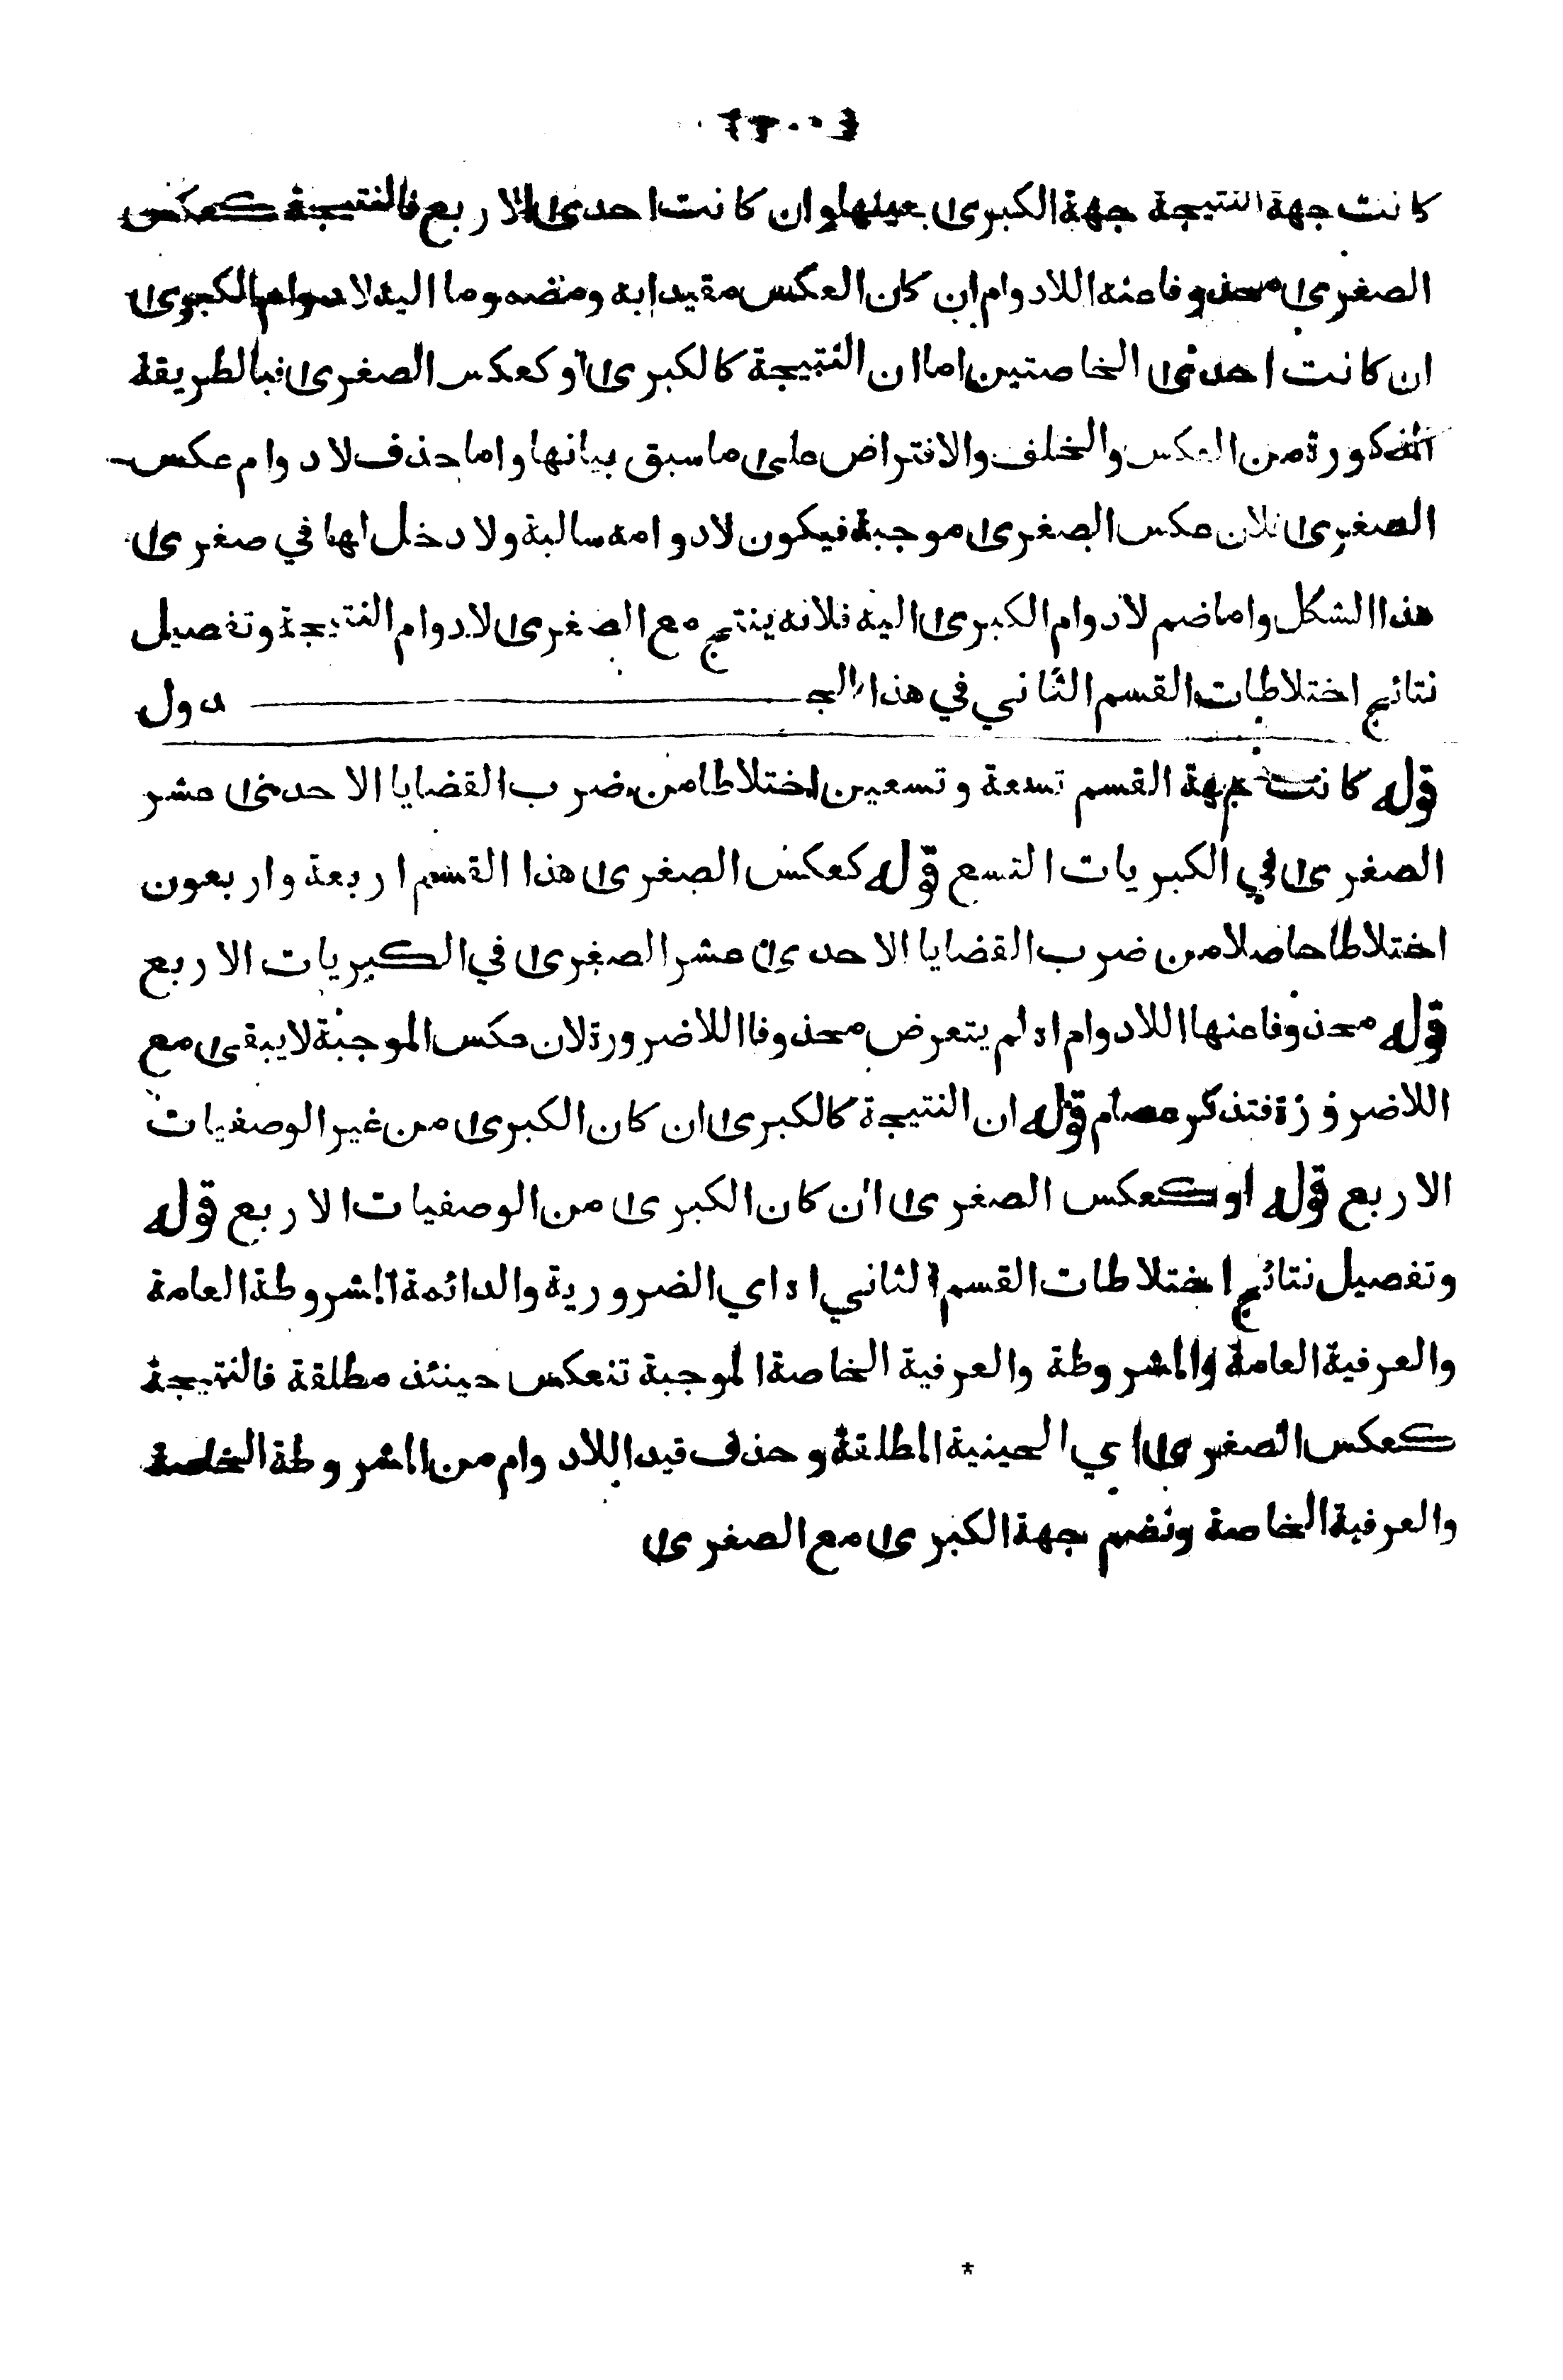 كانت جهة النتيجة جهة الكبرى بعينها وان كانت احدى الاربع فالنتيجة كعكس
الصغرى محذوفا عنه اللادوام ان كان العكس مقيدا به ومضموما اليه لادوام الكبرى
ان كانت احدى الخاصتين اما ان النتيجة كالكبرى او كعكس الصغرى فبالطريقة
المذكورة من العكس والخلف والافتراض على ما سبق بيانها واما حذف لادوام عكس
الصغرى فلان عكس الصغرى موجبة فيكون لادوامه سالبة ولا دخل لها في صغرى
هذا الشكل واما ضم لادوام الكبرى اليه فلانه ينتج مع الصغرى لادوام النتيجة وتفصيل
نتائج اختلاطات القسم الثاني في هذا الجـــدول
قوله كانت جهة القسم تسعة وتسعين اختلاطا من ضرب القضايا الاحدى عشر
الصغرى في الكبريات التسع قوله كعكس الصغرى هذا القسم اربعة واربعون
اختلاطا حاصلا من ضرب القضايا الاحدى عشر الصغرى في الكبريات الاربع
قوله محذوفا عنها اللادوام اه لم يتعرض محذوفا اللاضرورة لان عكس الموجبة لا يبقى مع
اللاضرورة فتذكر عصام قوله ان النتيجة كالكبرى ان كان الكبرى من غير الوصفيات
الاربع قوله او كعكس الصغرى ان كان الكبرى من الوصفيات الاربع قوله
وتفصيل نتائج اختلاطات القسم الثاني اه اي الضرورية والدائمة المشروطة العامة
والعرفية العامة والمشروطة والعرفية الخاصة الموجبة تنعكس حينئذ مطلقة فالنتيجة
كعكس الصغرى اي الحينية المطلقة وحذف قيد اللادوام من المشروطة الخاصة
والعرفية الخاصة ونضم جهة الكبرى مع الصغرى
*